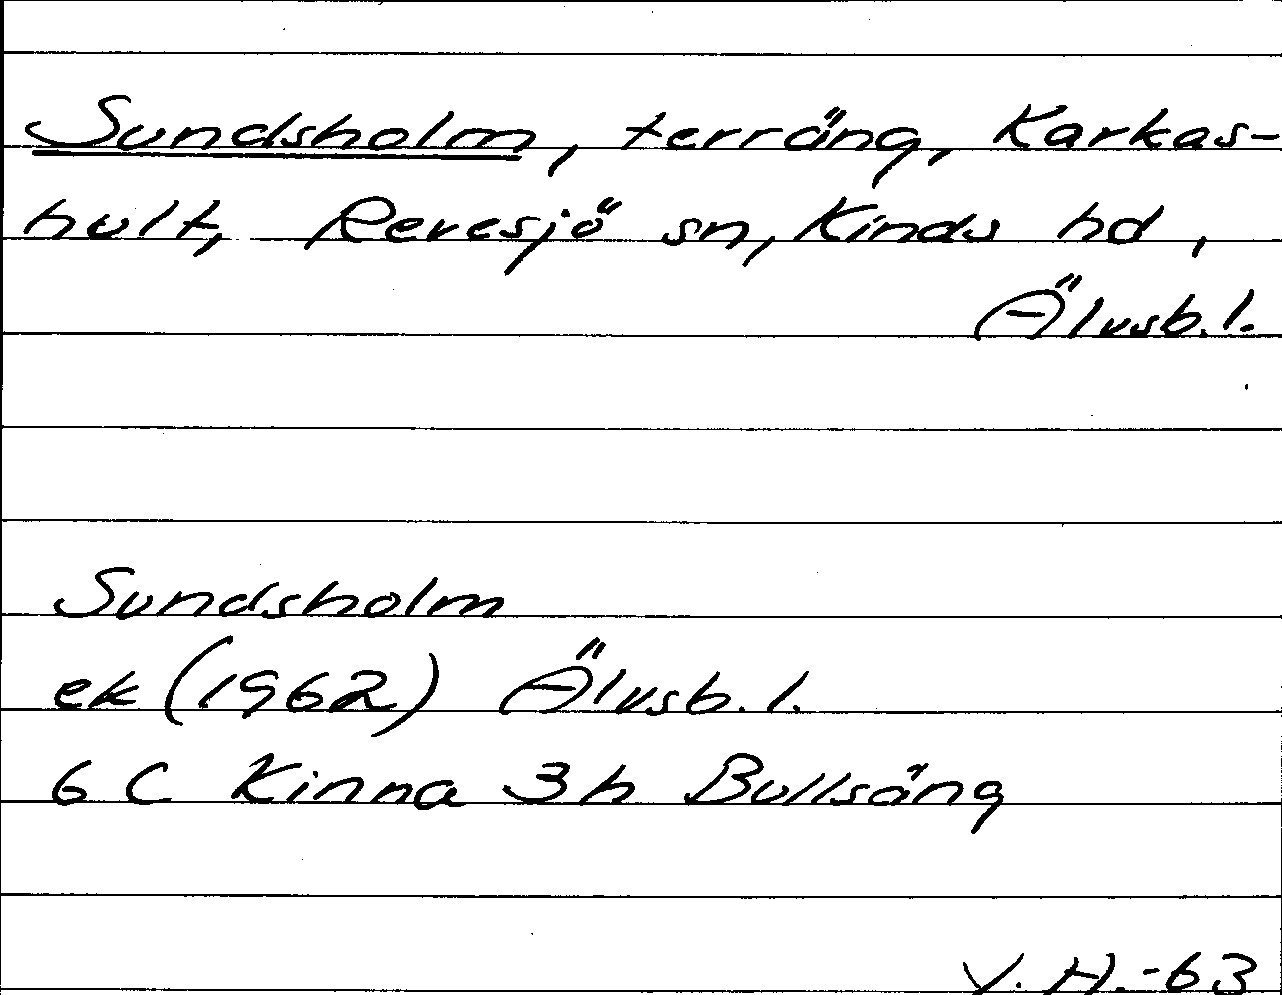 Sundsholm, terräng, Karkas-
hult, Revesjö sn, Kinds hd,
Älvsb. l.
Sundsholm
ek (1962) Älvsb. l.
6 C Kinna 3h Bullsäng
V. H. -63